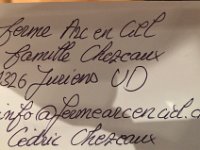 Ferme Arc en Ciel
Famille Chezeaux
1326 Juriens VD
info@fermearcenciel.c
Cédric Chezeaux